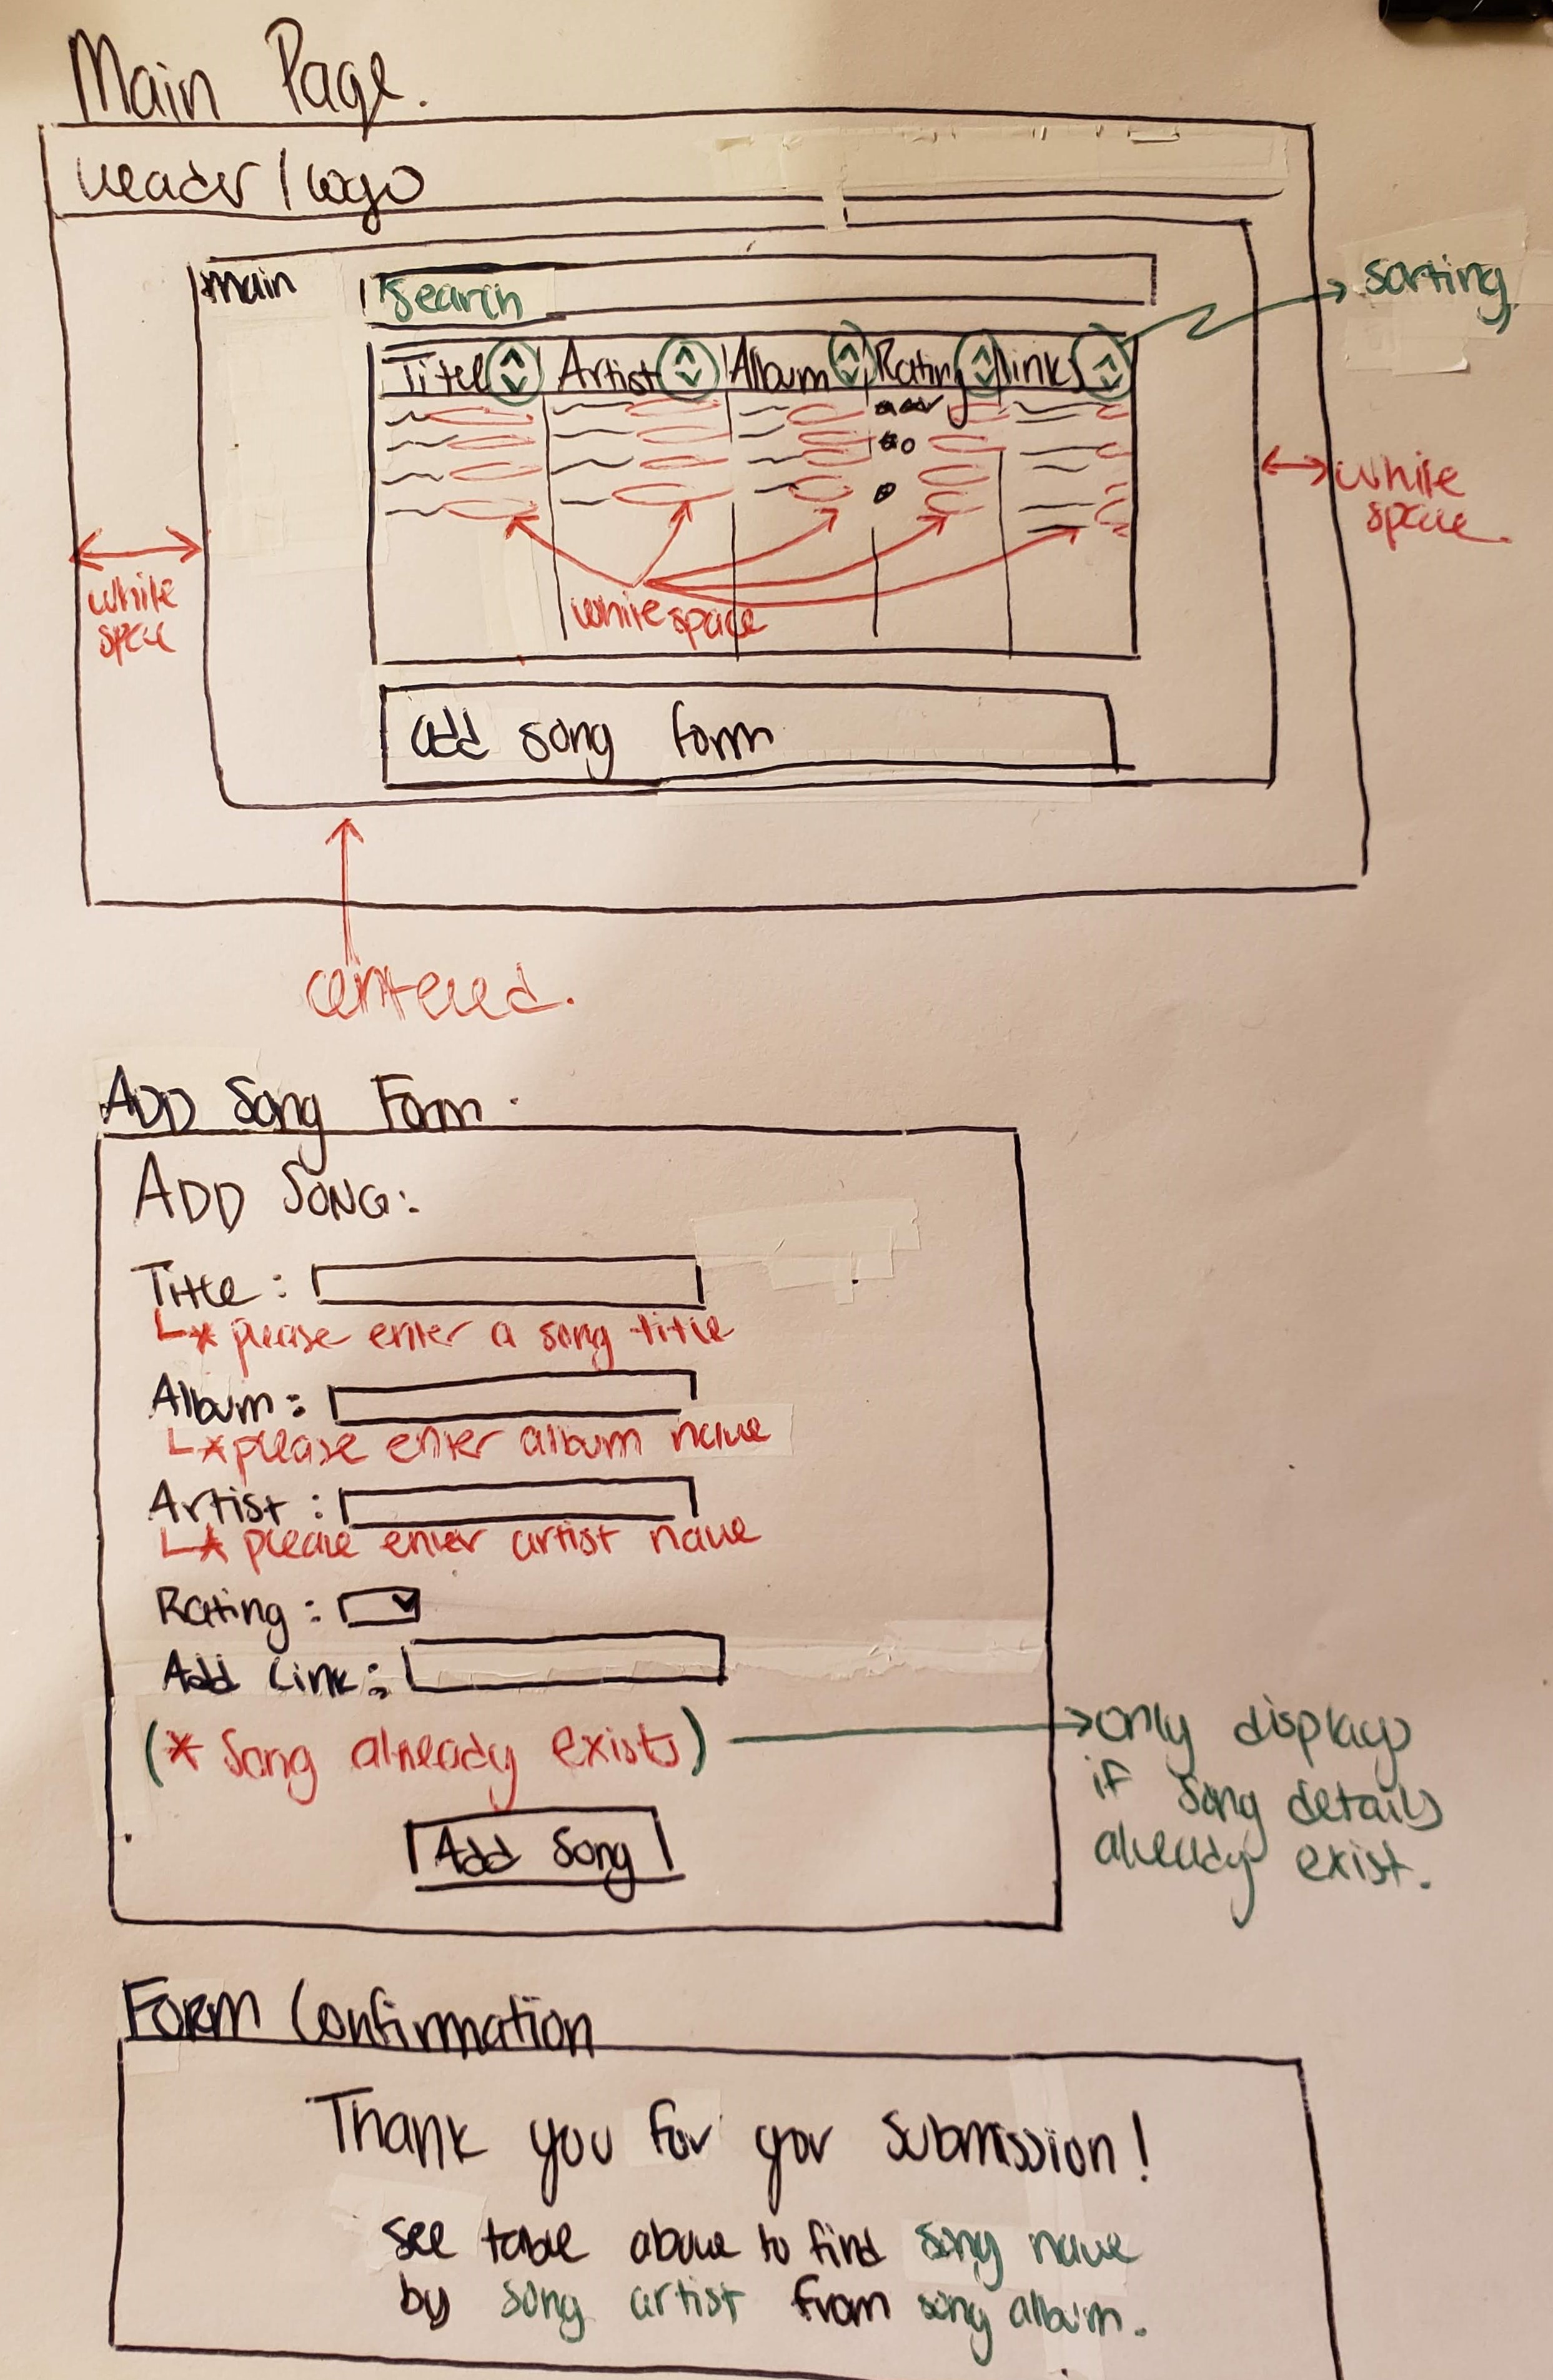 Main Page.
header / logo
main
search
sorting
Title Artist Album Rating links
white space
white space
white space
add song form
centered.
ADD Song Form.
ADD SONG:
Title :
* please enter a song title
Album :
* please enter album name
Artist :
* please enter artist name
Rating :
Add Link :
(* Song already exists)
only displays
if song details
already exist.
Add Song
Form Confirmation
Thank you for your submission!
see table above to find song name
by song artist from song album.